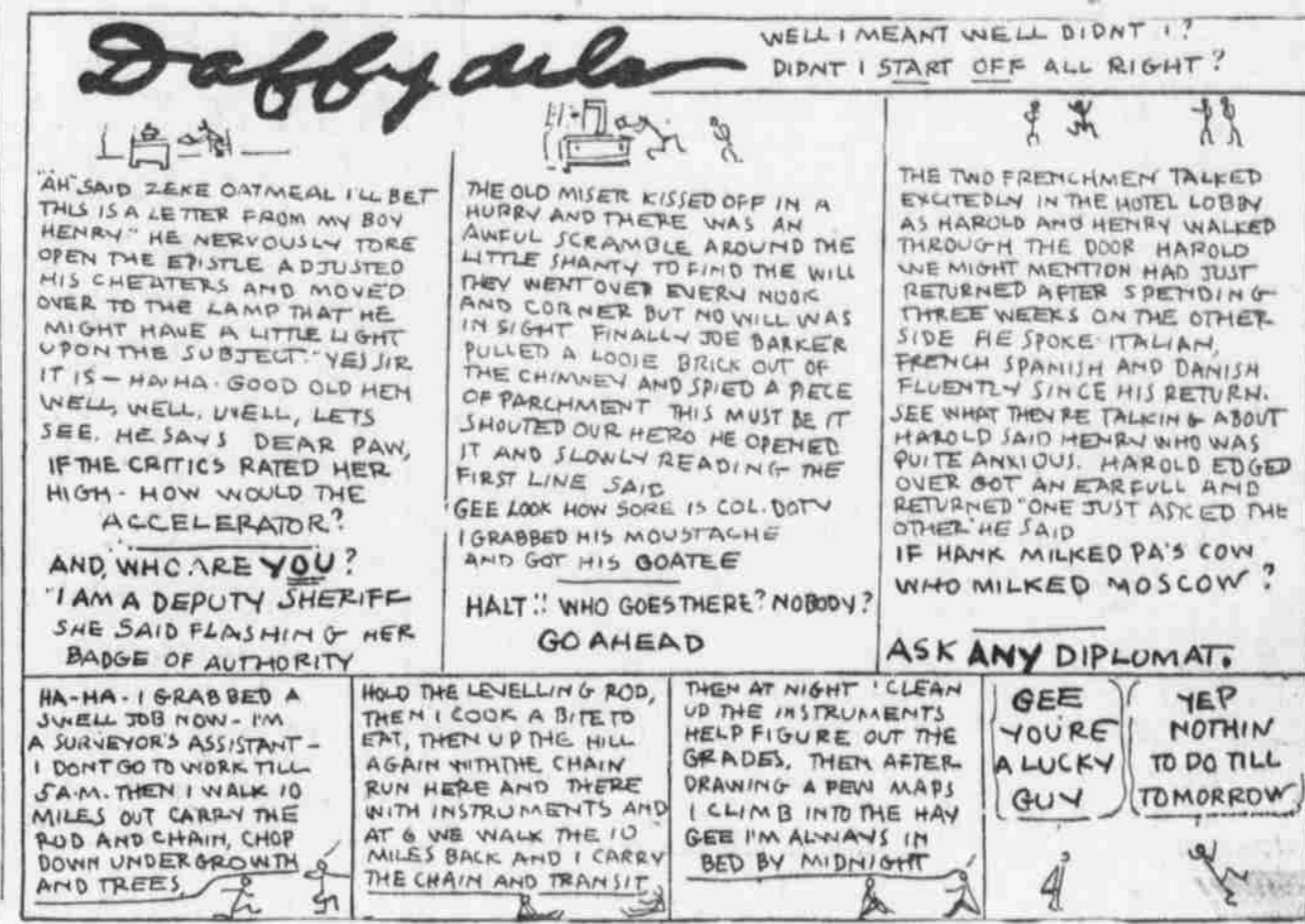 Daffydils
WELL I MEANT WELL DIDNT I?
DIDNT I START OFF ALL RIGHT?
"AH" SAID ZEKE OATMEAL I'LL BET
THIS IS A LETTER FROM MY BOY
HENRY." HE NERVOUSLY TORE
OPEN THE EPISTLE ADJUSTED
HIS CHEATERS AND MOVED
OVER TO THE LAMP THAT HE
MIGHT HAVE A LITTLE LIGHT
UPON THE SUBJECT. "YES SIR
IT IS — HA, HA - GOOD OLD HEN
WELL, WELL, WELL, LETS
SEE. HE SAYS DEAR PAW,
IF THE CRITICS RATED HER
HIGH - HOW WOULD THE
ACCELERATOR?
AND, WHO ARE YOU?
"I AM A DEPUTY SHERIFF
SHE SAID FLASHING HER
BADGE OF AUTHORITY
THE OLD MISER KISSED OFF IN A
HURRY AND THERE WAS AN
AWFUL SCRAMBLE AROUND THE
LITTLE SHANTY TO FIND THE WILL
THEY WENT OVER EVERY NOOK
AND CORNER BUT NO WILL WAS
IN SIGHT FINALLY JOE BARKER
PULLED A LOOSE BRICK OUT OF
THE CHIMNEY AND SPIED A PIECE
OF PARCHMENT THIS MUST BE IT
SHOUTED OUR HERO HE OPENED
IT AND SLOWLY READING THE
FIRST LINE SAID
GEE LOOK HOW SORE IS COL. DOTY
I GRABBED HIS MOUSTACHE
AND GOT HIS GOATEE
HALT!! WHO GOES THERE? NOBODY?
GO AHEAD
THE TWO FRENCHMEN TALKED
EXCITEDLY IN THE HOTEL LOBBY
AS HAROLD AND HENRY WALKED
THROUGH THE DOOR HAROLD
WE MIGHT MENTION HAD JUST
RETURNED AFTER SPENDING
THREE WEEKS ON THE OTHER
SIDE HE SPOKE ITALIAN,
FRENCH SPANISH AND DANISH
FLUENTLY SINCE HIS RETURN.
SEE WHAT THEY'RE TALKING ABOUT
HAROLD SAID HENRY WHO WAS
QUITE ANXIOUS. HAROLD EDGED
OVER GOT AN EARFULL AND
RETURNED "ONE JUST ASKED THE
OTHER" HE SAID
IF HANK MILKED PA'S COW
WHO MILKED MOSCOW?
ASK ANY DIPLOMAT.
HA-HA - I GRABBED A
SWELL JOB NOW - I'M
A SURVEYOR'S ASSISTANT -
I DONT GO TO WORK TILL
5 A.M. THEN I WALK 10
MILES OUT CARRY THE
ROD AND CHAIN, CHOP
DOWN UNDERGROWTH
AND TREES,
HOLD THE LEVELLING ROD,
THEN I COOK A BITE TO
EAT, THEN UP THE HILL
AGAIN WITH THE CHAIN
RUN HERE AND THERE
WITH INSTRUMENTS AND
AT 6 WE WALK THE 10
MILES BACK AND I CARRY
THE CHAIN AND TRANSIT
THEN AT NIGHT I CLEAN
UP THE INSTRUMENTS
HELP FIGURE OUT THE
GRADES, THEN AFTER
DRAWING A FEW MAPS
I CLIMB INTO THE HAY
GEE I'M ALWAYS IN
BED BY MIDNIGHT
GEE
YOU'RE
A LUCKY
GUY
YEP
NOTHIN
TO DO TILL
TOMORROW